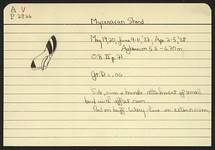 A V
P 2826
Mycenaean Sherd
May 19, 20, June 9-11, '37, Apr. 2-5, '38
5.5 - 6.70 m.
O.8 II p. 71
.06
Side, rim & handle attachment of small
bowl with offset rim.
Red on buff. Wavy line on exterior rim.